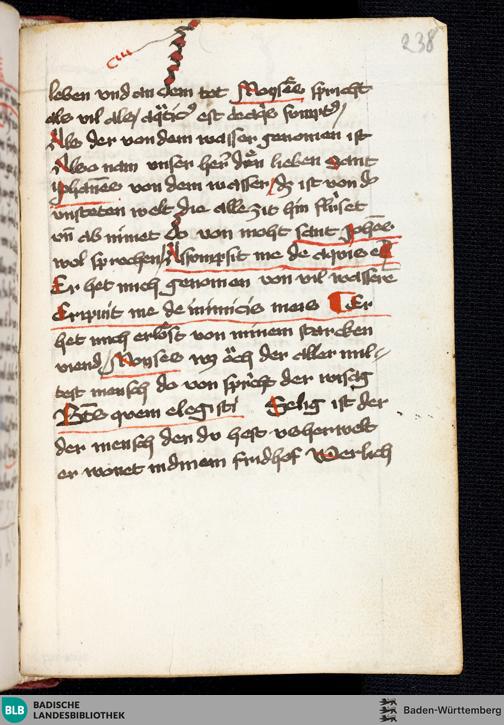 238
leben vnd an dem tot Moyses spricht
als vil als / aq̄ticꝰ est de aq̄s sumptꝰ /
Als der von dem wasser genomen ist
Also nam vnser her dē lieben Sant
Johanes von dem wasser / dz ist von dˢ
vnsteten welt die alle zit hin fluset
vn̄ ab nimet do von moht sant Johēs
wol sprechen / Assumpsit me de aquis
Er het mich genomen von vil wassere
Eripuit me de inimicis meis Er
het mich erlöst von minem starcken
viend / Moyses wz öch der aller mil-
test mensch do von spricht der wisag
Btūs quem elegisti Selig ist der
der mensch den du hest vsherwelt
er wonet in dinem fridhof Werlich
BLB
BADISCHE
LANDESBIBLIOTHEK
Baden-Württemberg